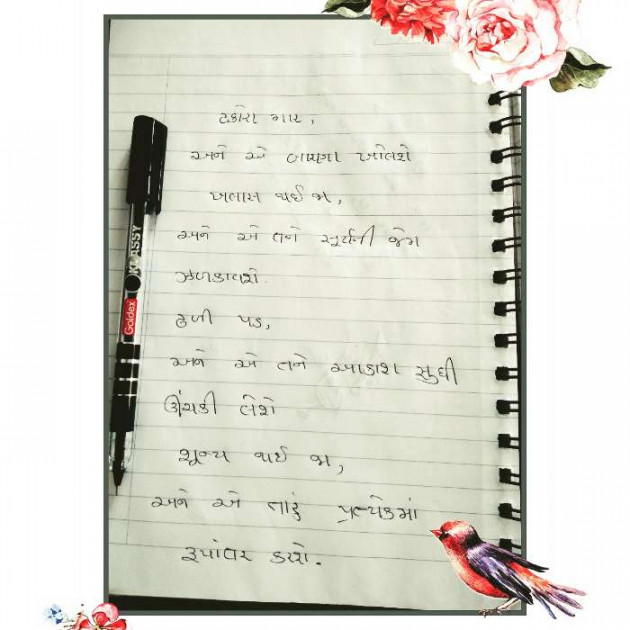 ટકોરા માર,
અને એ બારણા ખોલશે
ખલાસ થઈ જા,
અને એ તને સૂર્યની જેમ
ઝળકાવશે.
ઢળી પડ,
અને એ તને આકાશ સુધી
ઊંચકી લેશે
શૂન્ય થઈ જા,
અને એ તારું પ્રત્યેકમાં
રૂપાંતર કરશે.
Goldex KLASSY